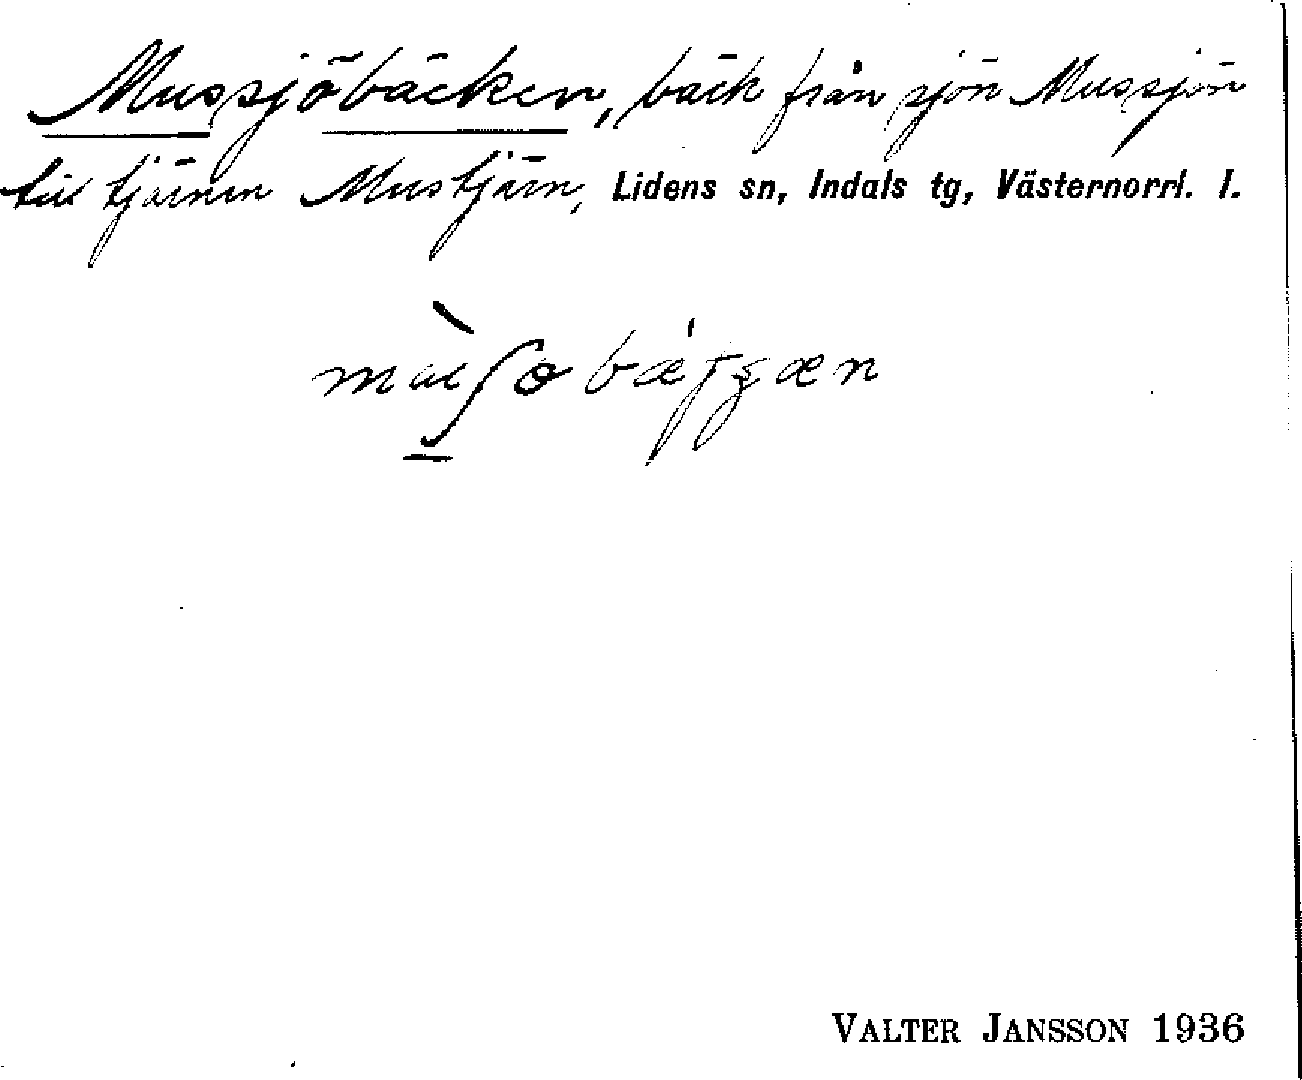 Mussjöbäcken, bäck från sjön Mussjön
till tjärnen Mustjärn, Lidens sn, Indals tg, Västernorrl. l.
VALTER JANSSON 1936